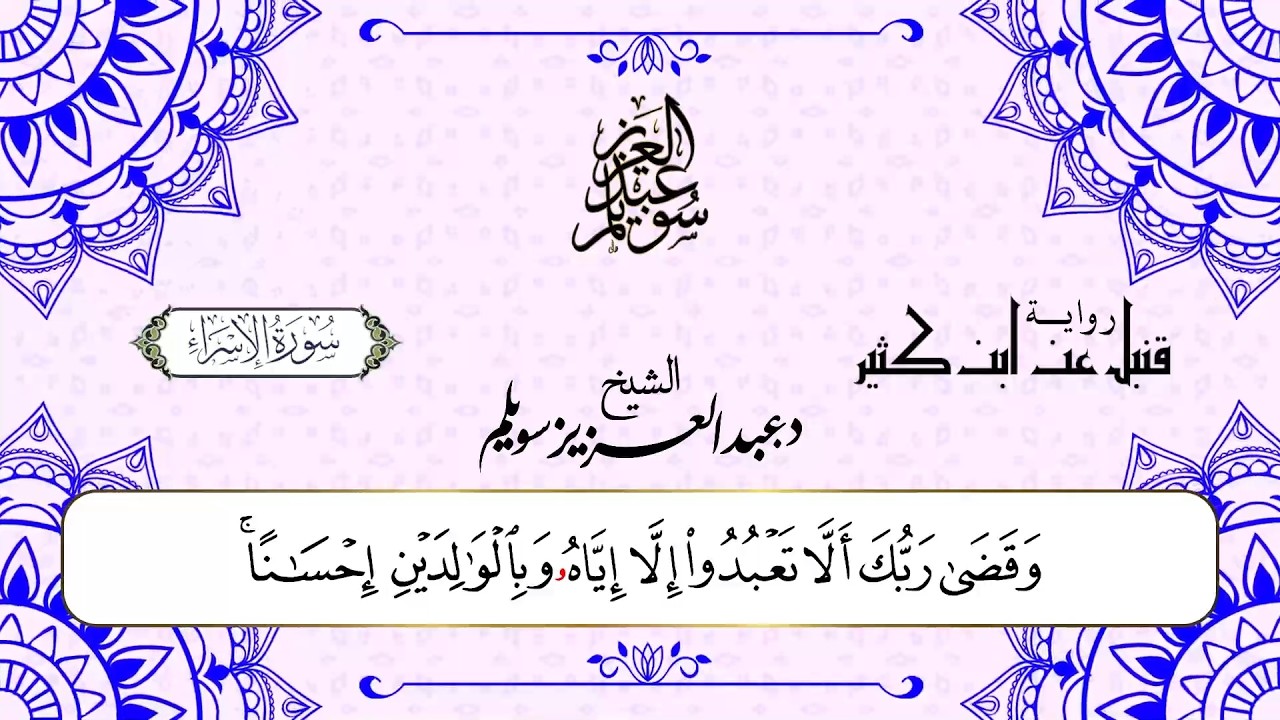 عبد العزيز سويلم
رواية
قنبل عن ابن كثير
سُورَةُ الإِسْرَاءِ
الشيخ
د عبد العزيز سويلم
وَقَضَىٰ رَبُّكَ أَلَّا تَعْبُدُوا۟ إِلَّا إِيَّاهُۥ وَبِٱلْوَٰلِدَيْنِ إِحْسَـٰنًاۚ